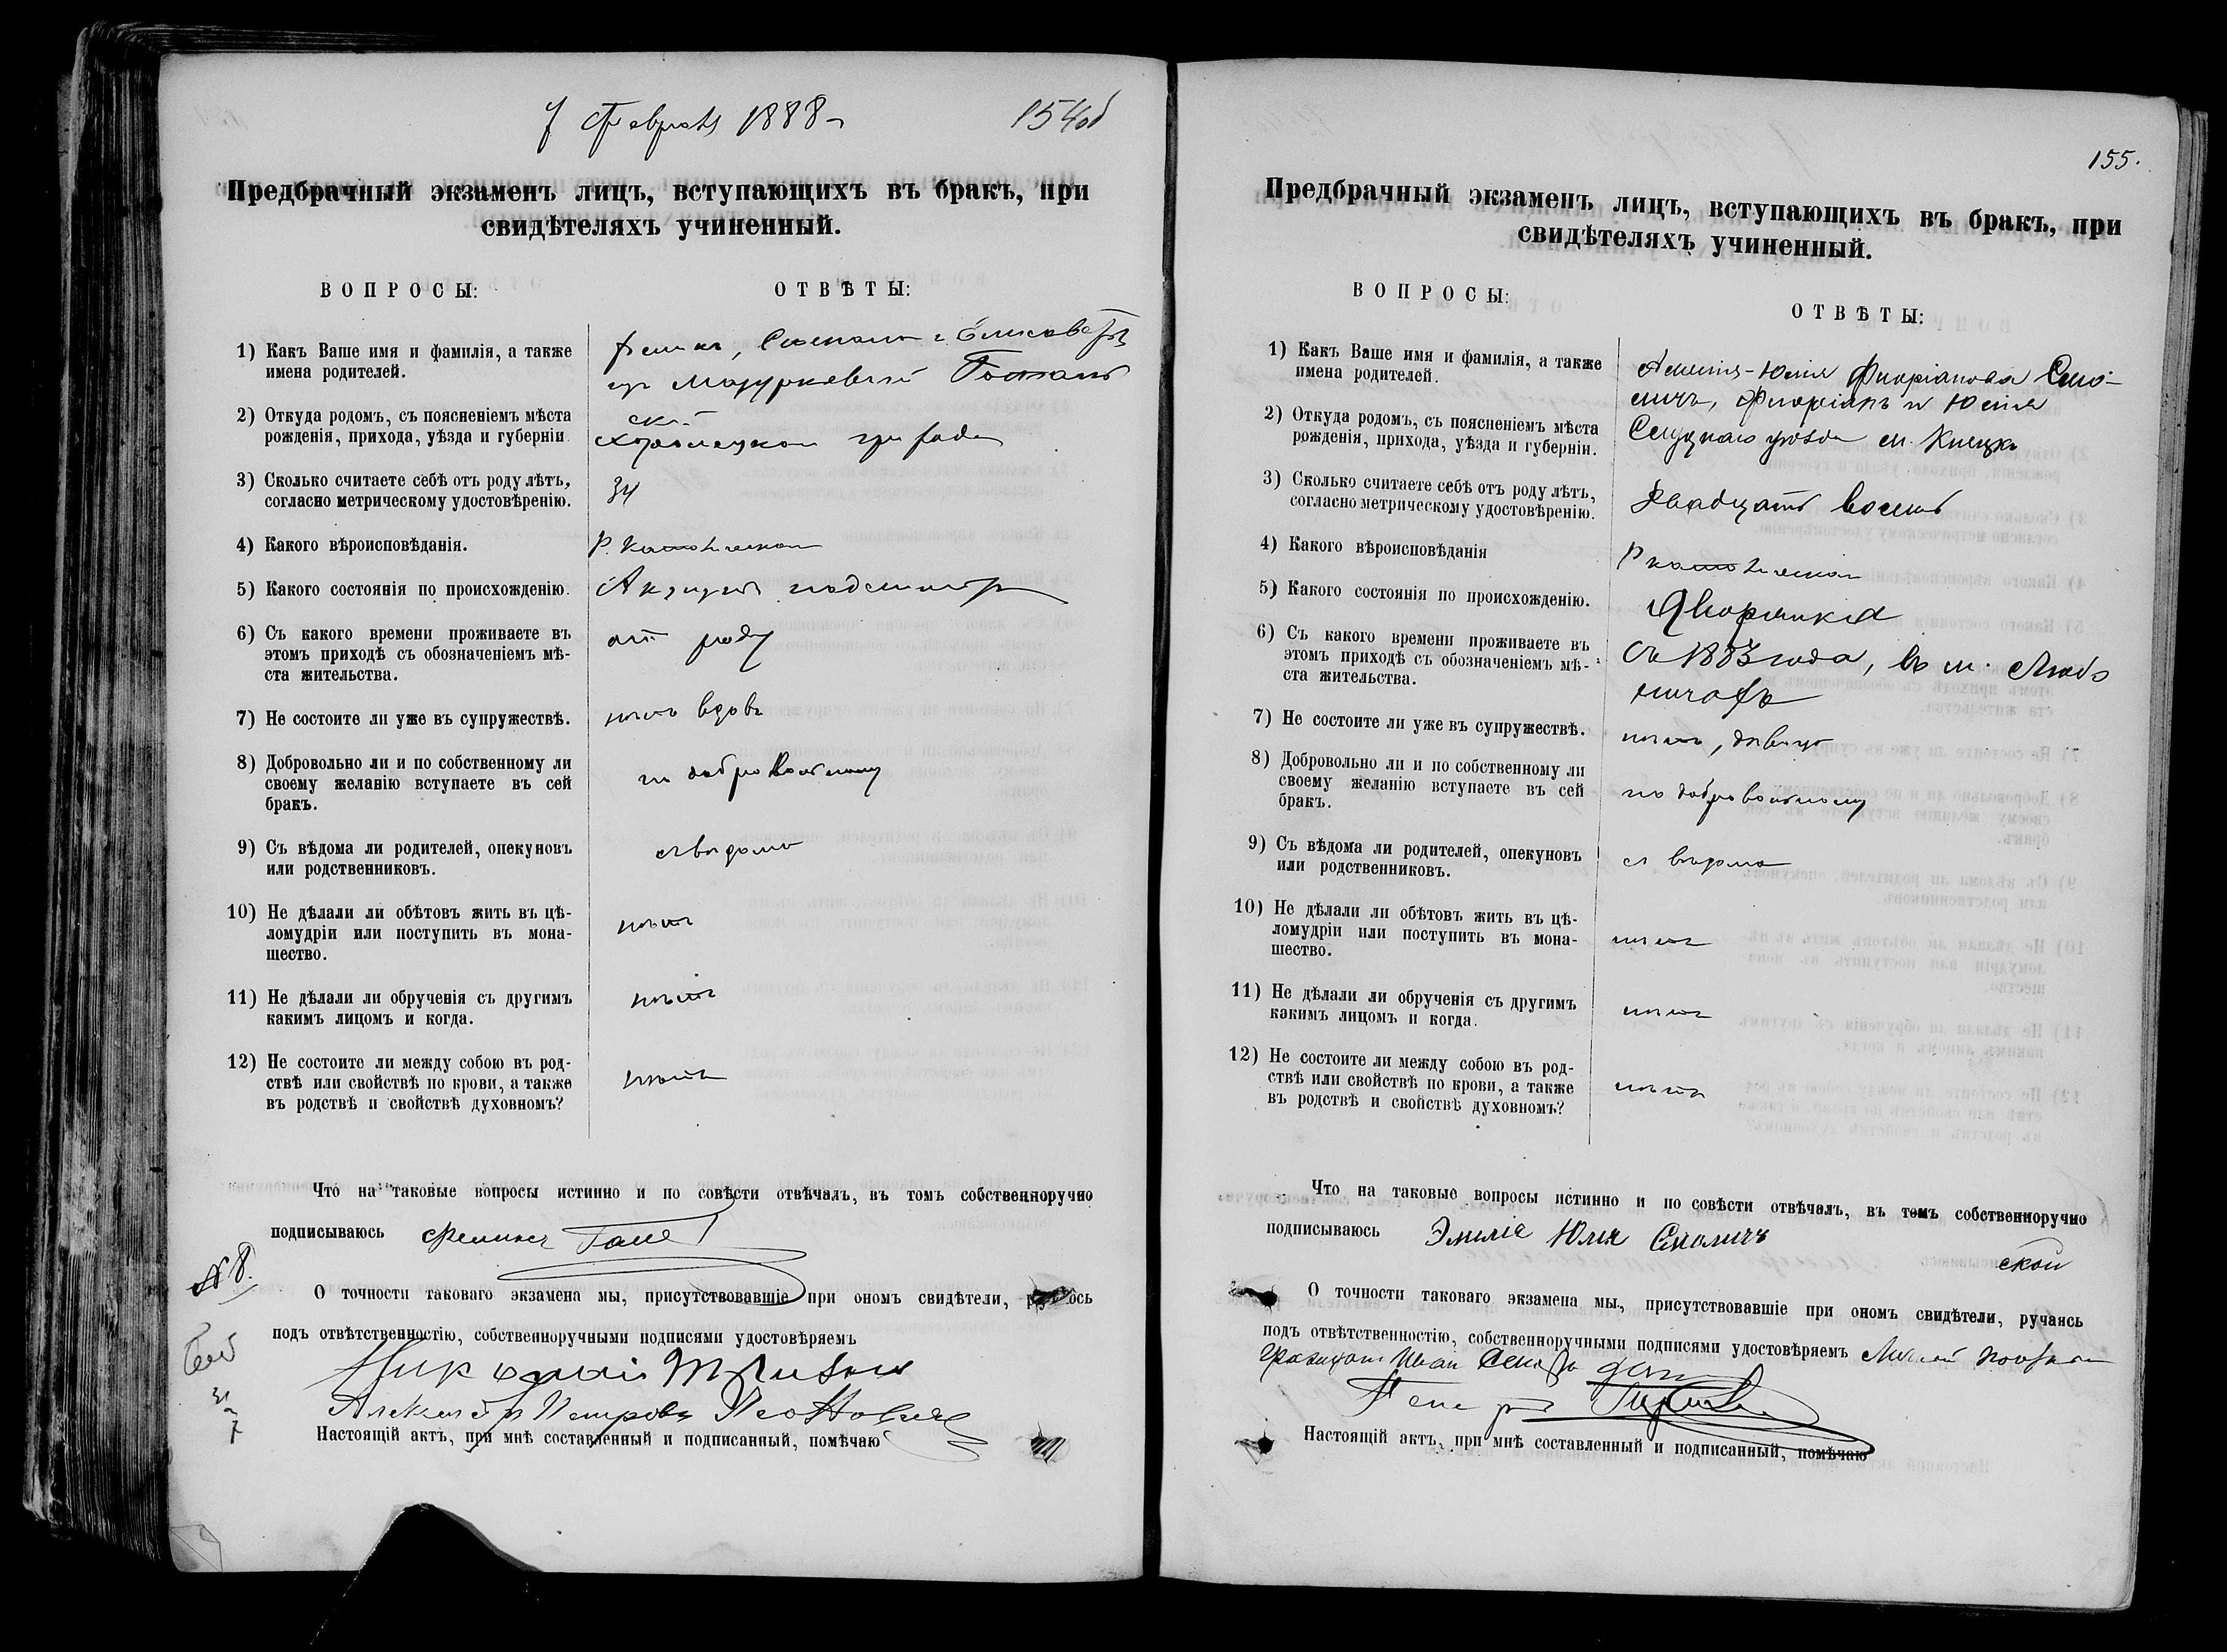 7 Февраля 1888
154об
Предбрачный экзаменъ лицъ, вступающихъ въ бракъ, при
свидѣтеляхъ учиненный.
ВОПРОСЫ:
ОТВѢТЫ:
1) Какъ Ваше имя и фамилія, а также
имена родителей.
2) Откуда родомъ, съ поясненіемъ мѣста
рожденія, прихода, уѣзда и губерніи
3) Сколько считаете себѣ отъ роду лѣтъ,
согласно метрическому удостовѣренію.
34
4) Какого вѣроисповѣданія.
Р. Католическаго
5) Какого состоянія по происхожденію.
6) Съ какого времени проживаете въ
этомъ приходѣ съ обозначеніемъ мѣ-
ста жительства.
отъ роду
7) Не состоите ли уже въ супружествѣ.
нѣтъ вдовъ
8) Добровольно ли и по собственному ли
своему желанію вступаете въ сей
бракъ.
по добровольному
9) Съ вѣдома ли родителей, опекуновъ
или родственниковъ.
съ вѣдома
10) Не дѣлали ли обѣтовъ жить въ цѣ-
ломудріи или поступить въ мона-
шество.
нѣтъ
11) Не дѣлали ли обрученія съ другимъ
какимъ лицомъ и когда.
нѣтъ
12) Не состоите ли между собою въ род-
ствѣ или свойствѣ по крови, а также
въ родствѣ и свойствѣ духовномъ?
нѣтъ
Что на таковые вопросы истинно и по совѣсти отвѣчалъ, въ томъ собственноручно
подписываюсь Феликсъ
№ 8.
О точности таковаго экзамена мы, присутствовавшіе при ономъ свидѣтели,
подъ отвѣтственностію, собственноручными подписями удостовѣряемъ
Настоящій актъ, при мнѣ составленный и подписанный, помѣчаю
155.
Предбрачный экзаменъ лицъ, вступающихъ въ бракъ, при
свидѣтеляхъ учиненный.
ВОПРОСЫ:
ОТВѢТЫ:
1) Какъ Ваше имя и фамилія, а также
имена родителей.
Юлія Флоріанова Смо-
личъ, Флоріанъ и Юлія
2) Откуда родомъ, съ поясненіемъ мѣста
рожденія, прихода, уѣзда и губерніи.
Слуцкаго уѣзда м. Клецкъ
3) Сколько считаете себѣ отъ роду лѣтъ,
согласно метрическому удостовѣренію.
Двадцать восемь
4) Какого вѣроисповѣданія
Р католическаго
5) Какого состоянія по происхожденію.
Дворянка
6) Съ какого времени проживаете въ
этомъ приходѣ съ обозначеніемъ мѣ-
ста жительства.
Съ 1883 года, въ м.
7) Не состоите ли уже въ супружествѣ.
нѣтъ, дѣвица
8) Добровольно ли и по собственному ли
своему желанію вступаете въ сей
бракъ.
по добровольному
9) Съ вѣдома ли родителей, опекуновъ
или родственниковъ.
съ вѣдома
10) Не дѣлали ли обѣтовъ жить въ цѣ-
ломудріи или поступить въ мона-
шество.
нѣтъ
11) Не дѣлали ли обрученія съ другимъ
какимъ лицомъ и когда.
нѣтъ
12) Не состоите ли между собою въ род-
ствѣ или свойствѣ по крови, а также
въ родствѣ и свойствѣ духовномъ?
нѣтъ
Что на таковые вопросы истинно и по совѣсти отвѣчалъ, въ томъ собственноручно
подписываюсь Эмилія Юлія Смоличъ
О точности таковаго экзамена мы, присутствовавшіе при ономъ свидѣтели, ручаясь
подъ отвѣтственностію, собственноручными подписями удостовѣряемъ
Настоящій актъ, при мнѣ составленный и подписанный, помѣчаю